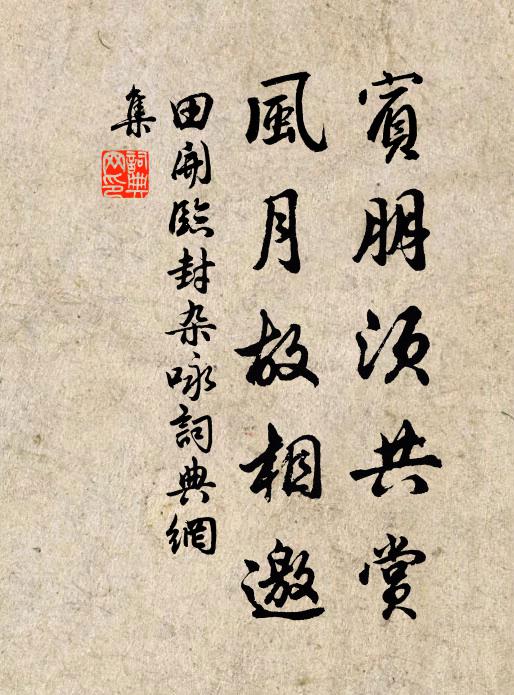 賓朋須共賞
風月故相邀
田開臨封杂咏詞典網
集
詞典网印